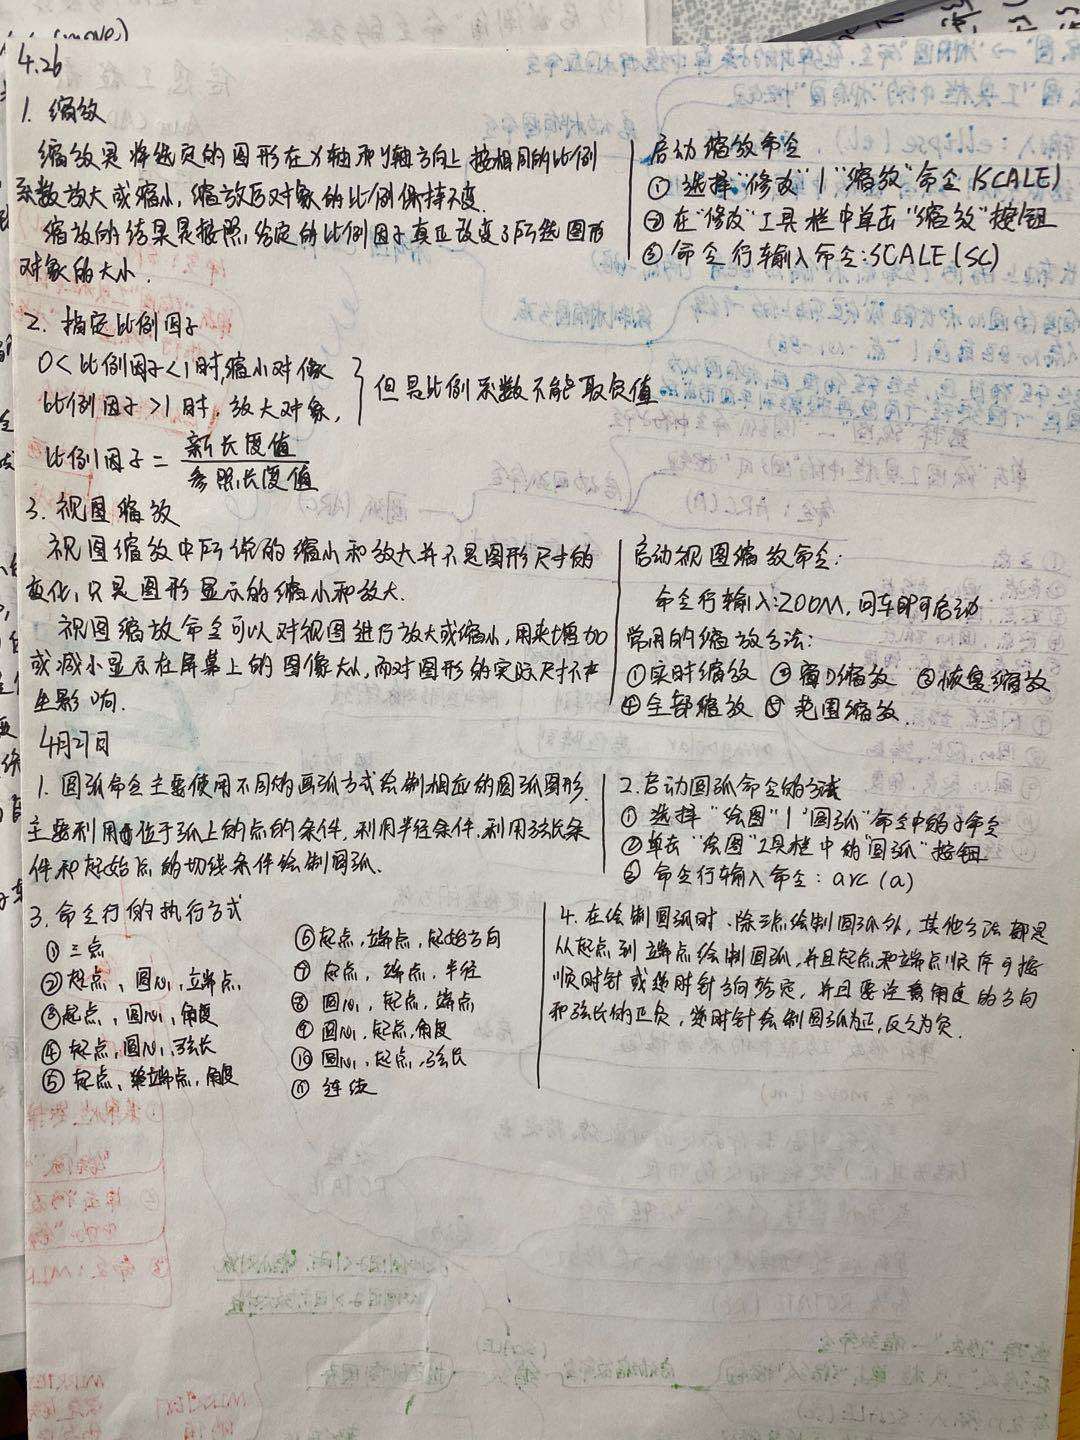 4.26
1. 缩放
缩放是将选定的图形在X轴和Y轴方向上按相同的比例
系数放大或缩小,缩放后对象的比例保持不变.
缩放的结果是按照给定的比例因子真正改变了所选图形
对象的大小.
启动缩放命令
① 选择“修改”|“缩放”命令(SCALE)
② 在“修改”工具栏中单击“缩放”按钮
③ 命令行输入命令:SCALE(SC)
2. 指定比例因子
0<比例因子<1时,缩小对像
比例因子>1时,放大对象,
但是比例系数不能取负值
比例因子= 新长度值
参照长度值
3. 视图缩放
视图缩放中所说的缩小和放大并不是图形尺寸的
变化,只是图形显示的缩小和放大.
视图缩放命令可以对视图进行放大或缩小,用来增加
或减小显示在屏幕上的图像大小,而对图形的实际尺寸不产
生影响.
启动视图缩放命令:
命令行输入:ZOOM,回车即可启动
常用的缩放方法:
①实时缩放 ②窗口缩放 ③恢复缩放
④全部缩放 ⑤范围缩放.
4月27日
1. 圆弧命令主要使用不同的画弧方式绘制相应的圆弧图形.
主要利用位于弧上的点的条件,利用半径条件,利用弦长条
件和起始点的切线条件绘制圆弧.
2.启动圆弧命令的方式
① 选择“绘图”|“圆弧”命令中的子命令
② 单击“绘图”工具栏中的“圆弧”按钮
③ 命令行输入命令:arc(a)
3. 命令行的执行方式
① 三点
② 起点、圆心、端点
③起点、圆心、角度
④ 起点、圆心、弦长
⑤ 起点、端点、角度
⑥起点,端点,起始方向
⑦ 起点,端点,半径
⑧ 圆心,起点,端点
⑨ 圆心,起点,角度
⑩ 圆心,起点,弦长
⑪ 连续
4. 在绘制圆弧时,除三点绘制圆弧外,其他方法都是
从起点到端点绘制圆弧,并且起点和端点顺序可按
顺时针或逆时针方向给定,并且要注意角度的方向
和弦长的正负,逆时针绘制圆弧为正,反之为负.